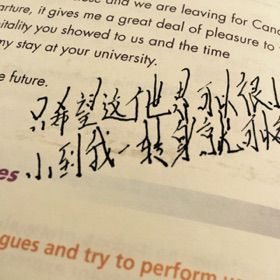 and we are leaving for Cana
arture, it gives me a great deal of pleasure to
itality you showed to us and the time
my stay at your university.
e future.
只希望这个世界可以很小
小到我一转身就可以
es
gues and try to perform y